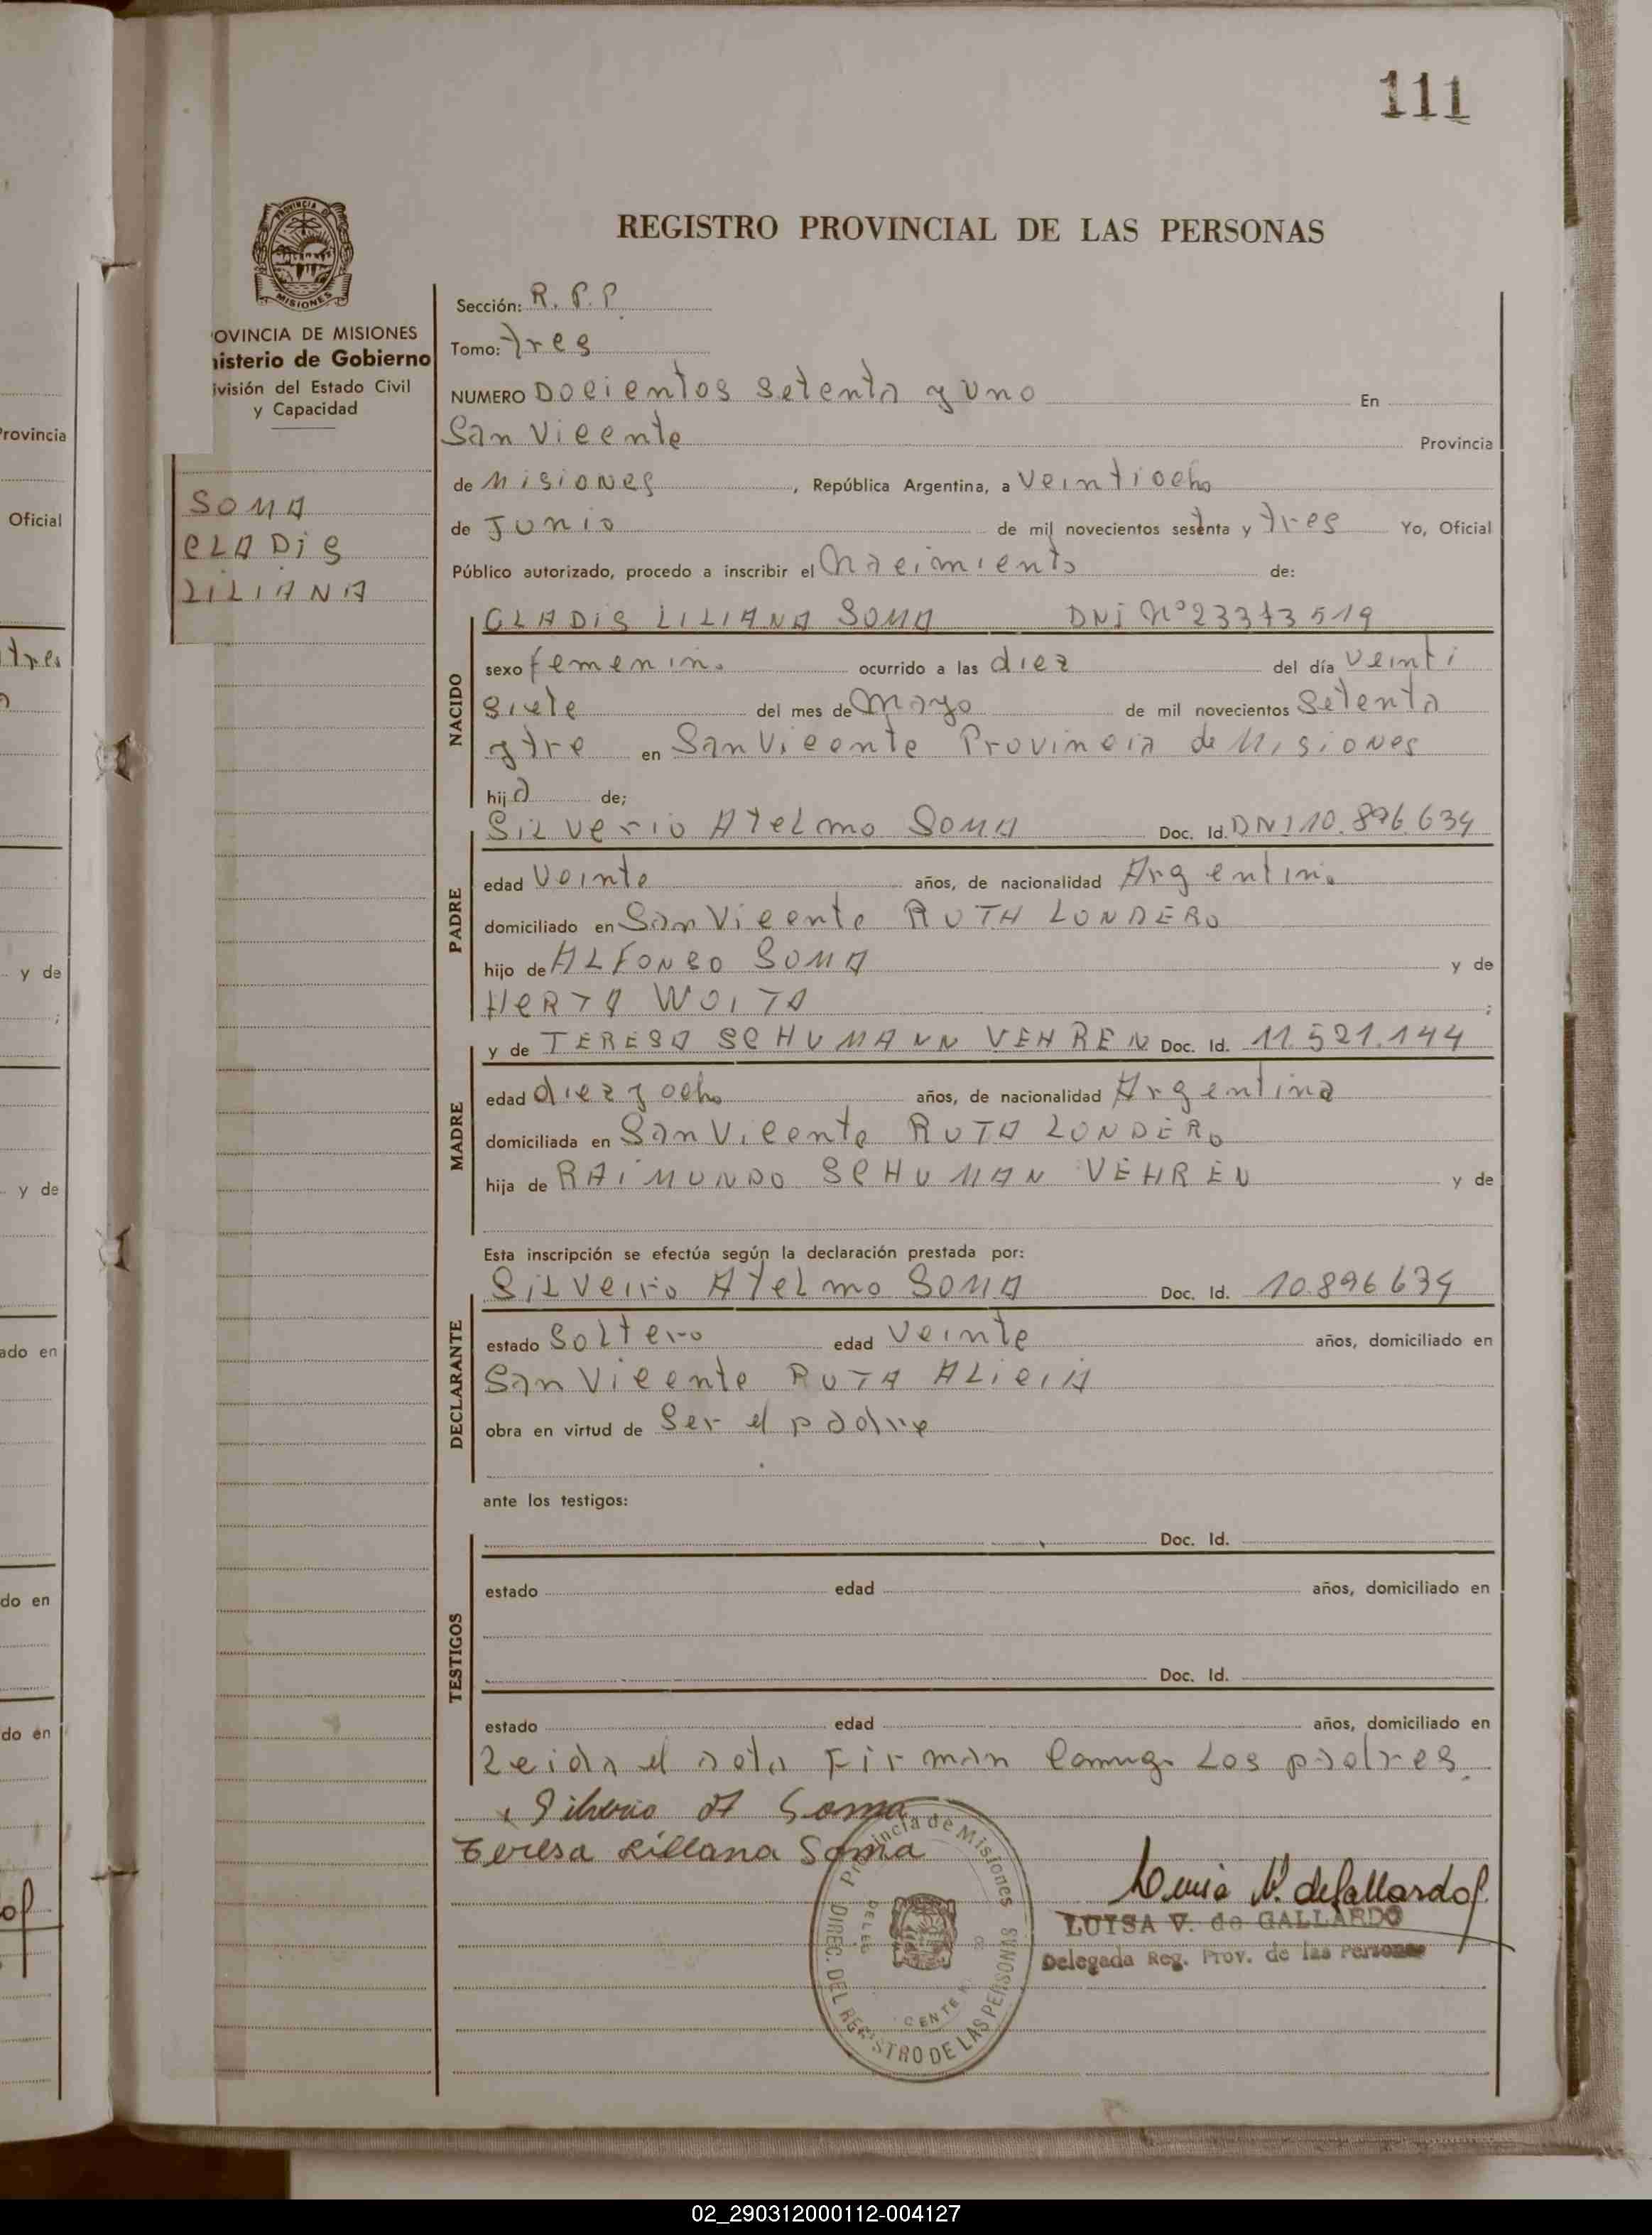 111
REGISTRO PROVINCIAL DE LAS PERSONAS
PROVINCIA DE MISIONES
MISIONES
OVINCIA DE MISIONES
nisterio de Gobierno
ivisión del Estado Civil
y Capacidad
SOMA
GLADiS
LiLiANA
Sección: R.P.P.
Tomo: tres
NUMERO Docientos setenta y uno En
San Vicente Provincia
de Misiones , República Argentina, a veintiocho
de Junio de mil novecientos setenta y tres Yo, Oficial
Público autorizado, procedo a inscribir el Nacimiento de:
NACIDO
GLADiS LILIANA SOMA DNi Nº 23373519
sexo femenino ocurrido a las diez del día veinti
siete del mes de mayo de mil novecientos setenta
y tre en San Vicente Provincia de Misiones
hija de;
PADRE
SiLverio AteLmo SOMA Doc. Id. DNI 10.896.634
edad Veinte años, de nacionalidad Argentino
domiciliado en San Vicente RUTA LONDERO
hijo de ALFONSO SOMA y de
HeRTA WOITA ;
MADRE
y de TERESA SCHUMANN VEHREN Doc. Id. 11.521.144
edad diez y ocho años, de nacionalidad Argentina
domiciliada en San Vicente RUTA LONDERO
hija de RAiMUNDO SCHUMAN VEHREN y de
Esta inscripción se efectúa según la declaración prestada por:
DECLARANTE
SiLverio AteLmo SOMA Doc. Id. 10.896634
estado Soltero edad Veinte años, domiciliado en
San Vicente RUTA ALiciA
obra en virtud de Ser el padre
ante los testigos:
TESTIGOS
Doc. Id.
estado edad años, domiciliado en
Doc. Id.
estado edad años, domiciliado en
Leida el acta Firman Los padres.
x Silverio A Soma
Teresa Liliana Soma
Provincia de Misiones
DIREC. DEL REGISTRO DE LAS PERSONAS
DELEG
CENTE
Luisa V. de Gallardo
LUISA V. de GALLARDO
Delegada Reg. Prov. de las Personas
rovincia
Oficial
tres
y de
;
y de
ado en
do en
do en
02_290312000112-004127